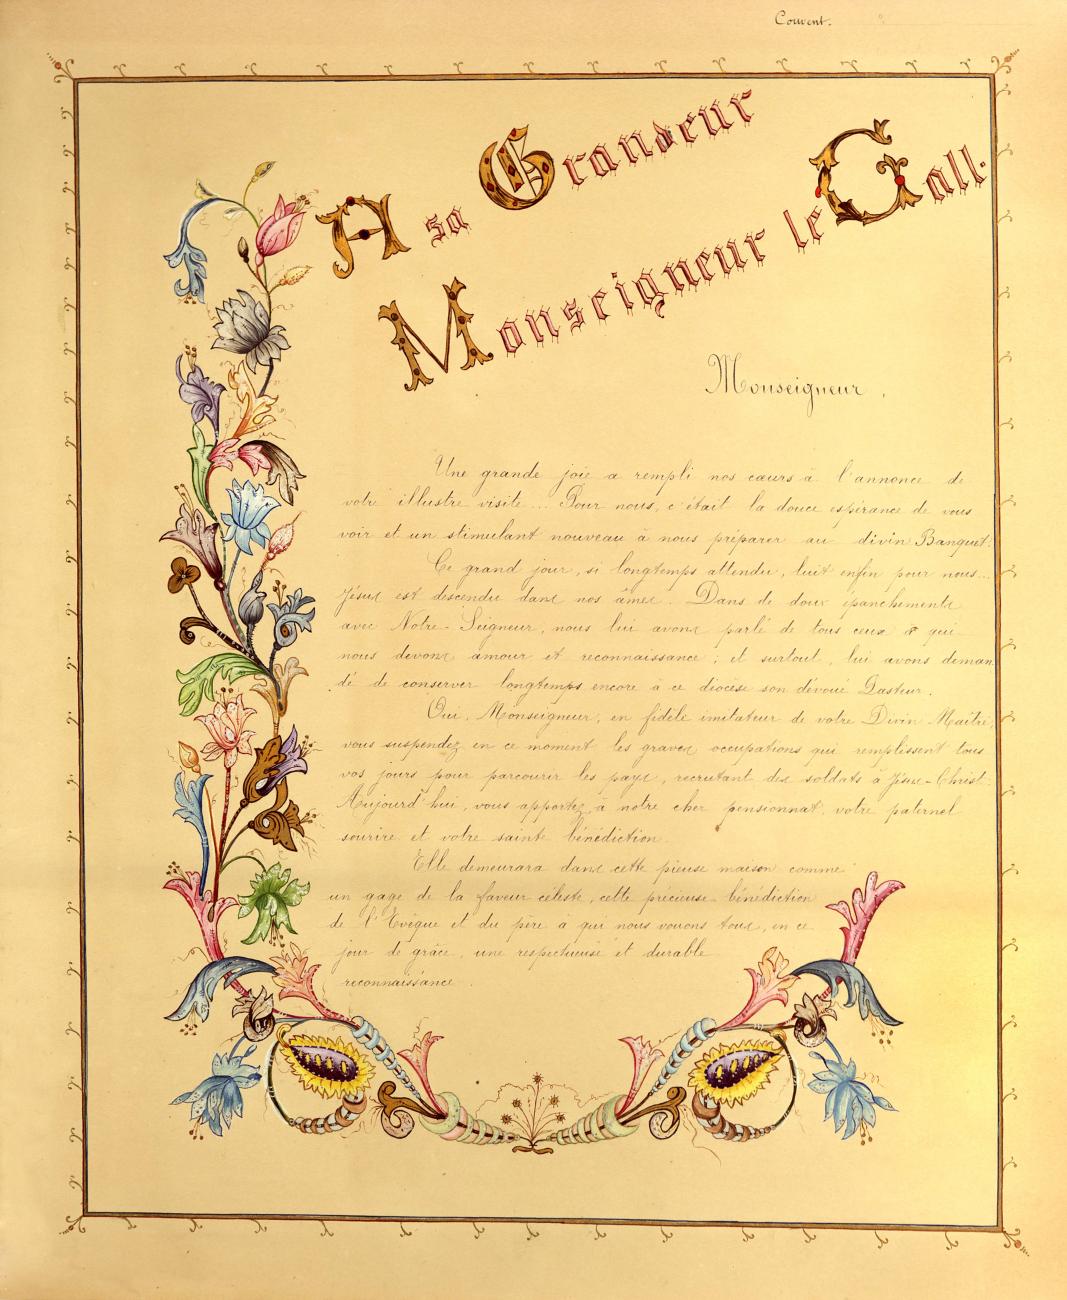 Couvent.
A sa Grandeur
Monseigneur le Gall.
Monseigneur,
Une grande joie a rempli nos cœurs à l'annonce de
votre illustre visite... Pour nous, c'était la douce espérance de vous
voir et un stimulant nouveau à nous préparer au divin Banquet.
Ce grand jour, si longtemps attendu, luit enfin pour nous...
Jésus est descendu dans nos âmes. Dans de doux épanchements
avec Notre-Seigneur, nous lui avons parlé de tous ceux à qui
nous devons amour et reconnaissance ; et surtout, lui avons deman
dé de conserver longtemps encore à ce diocèse son dévoué Pasteur.
Oui, Monseigneur, en fidèle imitateur de votre Divin Maître,
vous suspendez en ce moment les graves occupations qui remplissent tous
vos jours pour parcourir les pays, recrutant des soldats à Jésus-Christ.
Aujourd'hui, vous apportez à notre cher pensionnat, votre paternel
sourire et votre sainte bénédiction.
Elle demeurara dans cette pieuse maison comme
un gage de la faveur céleste, cette précieuse bénédiction
de l'Evêque et du père à qui nous vouons tous, en ce
jour de grâce, une respectueuse et durable
reconnaissance.